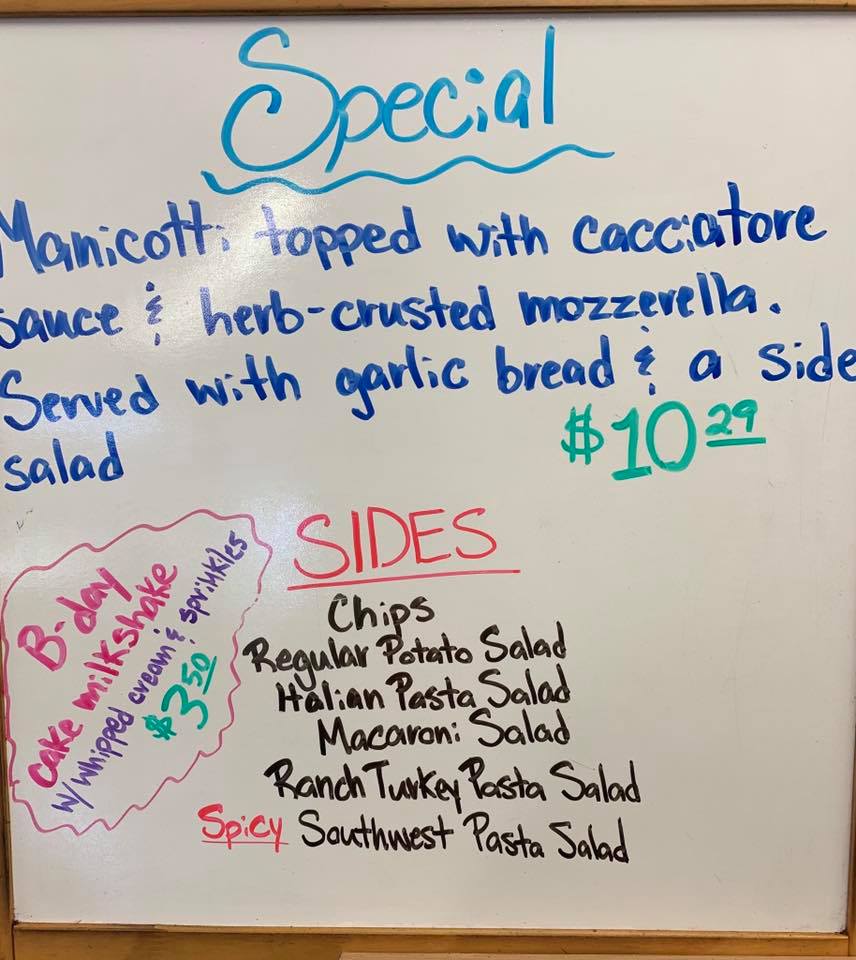 Special
Manicotti topped with cacciatore
sauce & herb-crusted mozzerella.
Served with garlic bread & a side
salad
$10.29
B-day
cake milkshake
w/ whipped cream & sprinkles
$3.50
SIDES
Chips
Regular Potato Salad
Italian Pasta Salad
Macaroni Salad
Ranch Turkey Pasta Salad
Spicy Southwest Pasta Salad